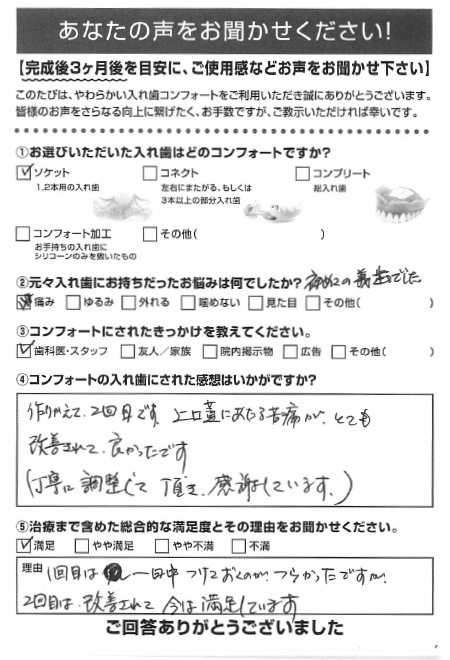 あなたの声をお聞かせください!
【完成後3ヶ月後を目安に、ご使用感などお声をお聞かせ下さい】
このたびは、やわらかい入れ歯コンフォートをご利用いただき誠にありがとうございます。
皆様のお声をさらなる向上に繋げたく、お手数ですが、ご教示いただければ幸いです。
①お選びいただいた入れ歯はどのコンフォートですか?
☑ソケット □コネクト □コンプリート
1,2本用の入れ歯 左右にまたがる、もしくは 総入れ歯
3本以上の部分入れ歯
□コンフォート加工 □その他( )
お手持ちの入れ歯に
シリコーンのみを敷いたもの
②元々入れ歯にお持ちだったお悩みは何でしたか? 初めての義歯でした
☑痛み □ゆるみ □外れる □噛めない □見た目 □その他( )
③コンフォートにされたきっかけを教えてください。
☑歯科医・スタッフ □友人/家族 □院内掲示物 □広告 □その他( )
④コンフォートの入れ歯にされた感想はいかがですか?
作りかえて、2回目です。上口蓋にあたる苦痛が、とても
改善されて、良かったです
(丁寧に調整して頂き、感謝しています。)
⑤治療まで含めた総合的な満足度とその理由をお聞かせください。
☑満足 □やや満足 □やや不満 □不満
理由 1回目は 一日中つけておくのが、つらかったですが、
2回目は、改善されて今は満足しています
ご回答ありがとうございました